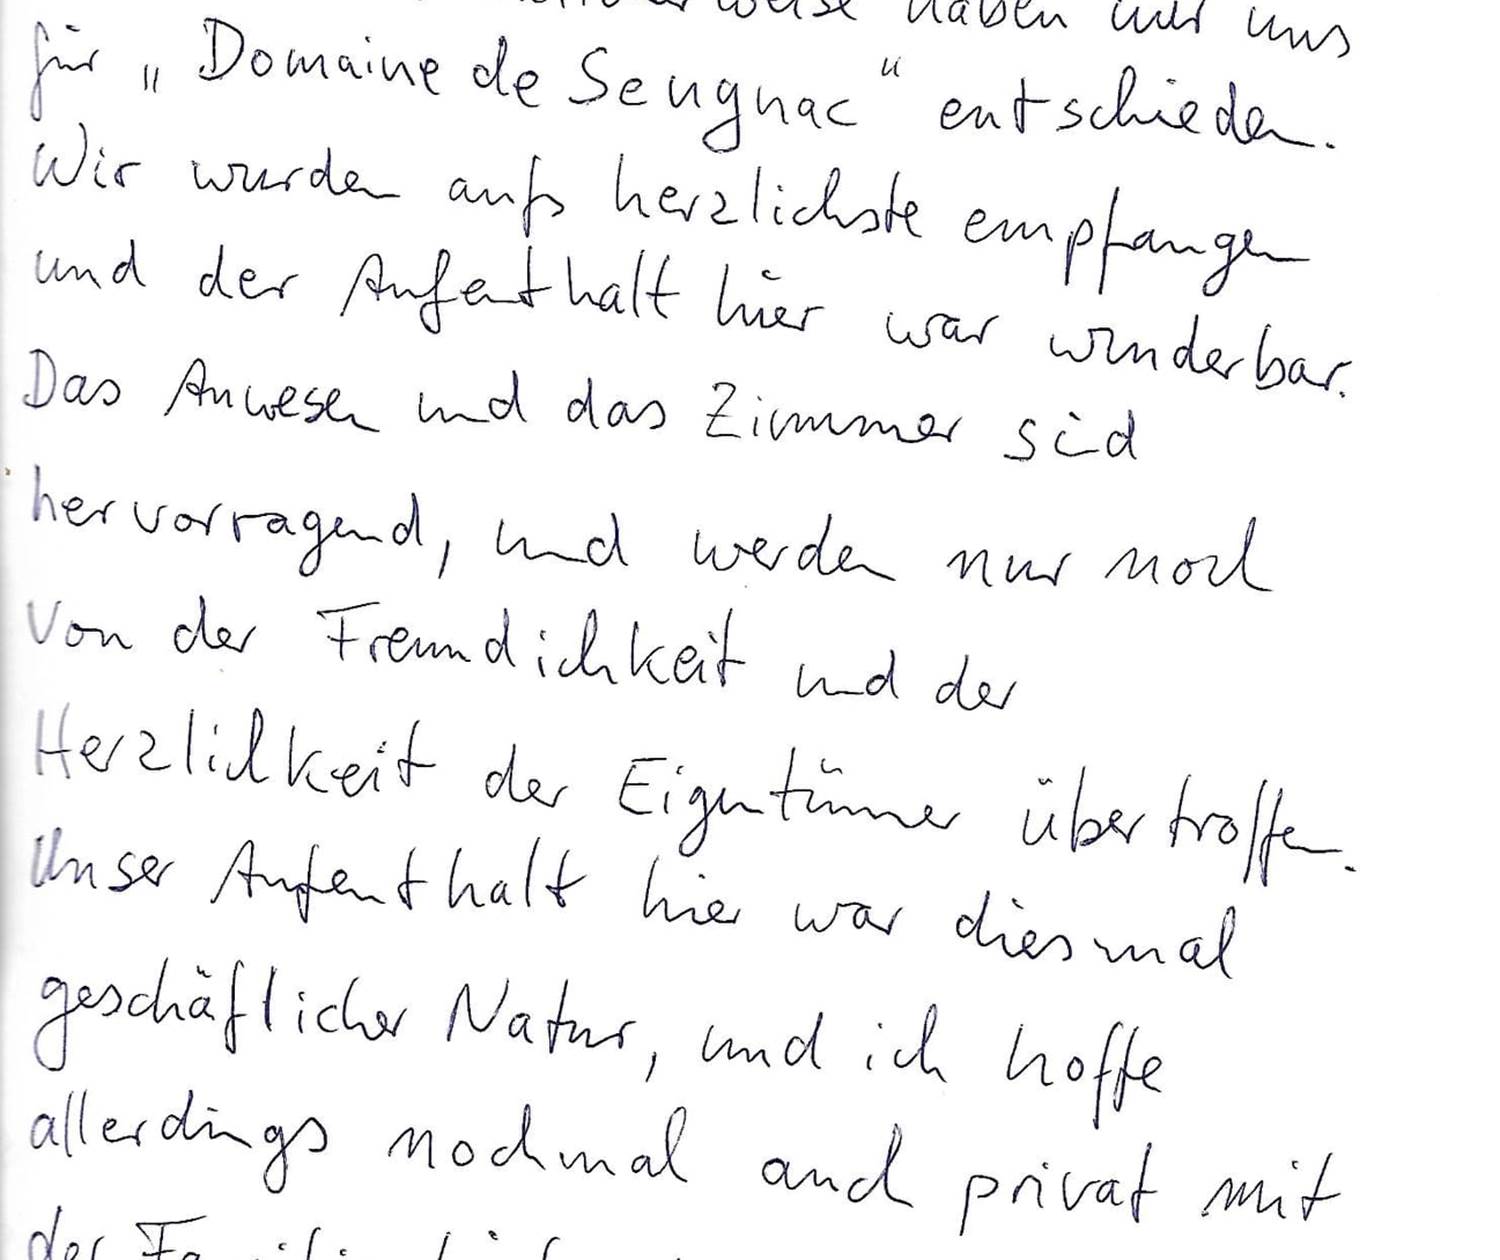 haben wir uns
für „Domaine de Seugnac“ entschieden.
Wir wurden aufs herzlichste empfangen
und der Aufenthalt hier war wunderbar.
Das Anwesen und das Zimmer sind
hervorragend, und werden nur noch
von der Freundichkeit und der
Herzlichkeit der Eigentümer übertroffen.
Unser Aufenthalt hier war diesmal
geschäflicher Natur, und ich hoffe
allerdings nochmal auch privat mit
der